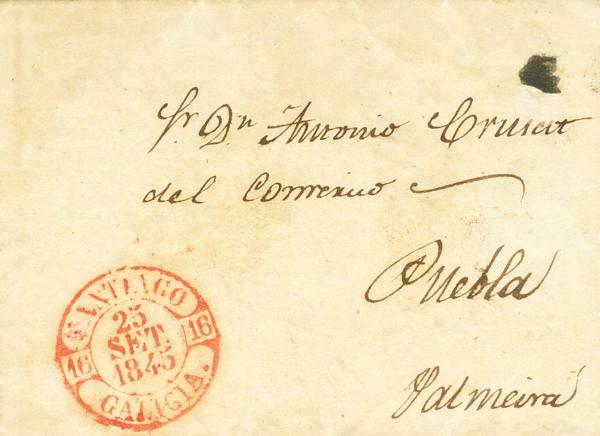 Sr Dn Antonio Cruset
del Comercio
Puebla
Palmeira
SANTIAGO
16 25 16
SET.
1845
GALICIA.